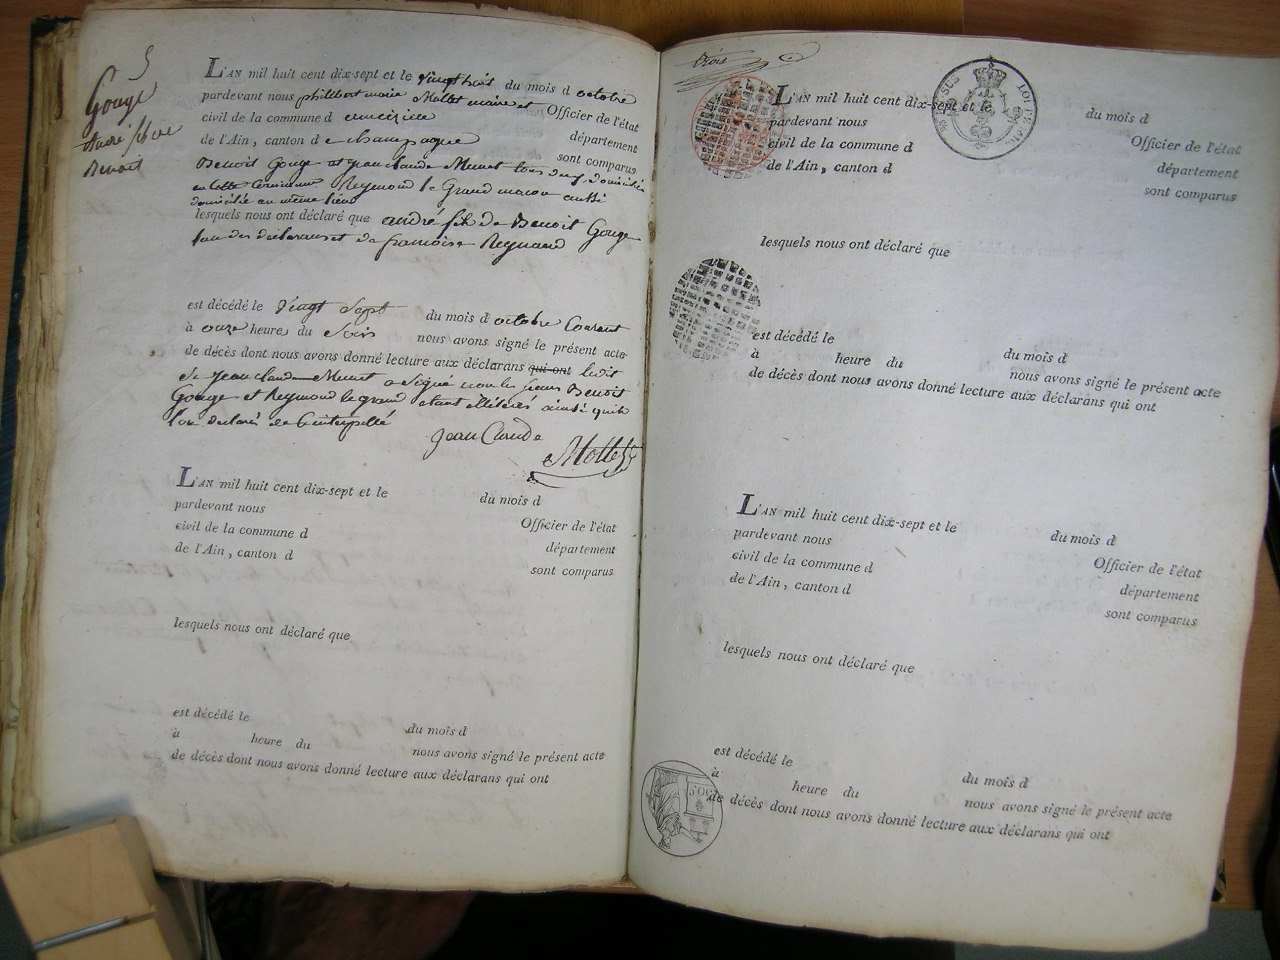 5
Gouge
andré fils de
Benoit
L'AN mil huit cent dix-sept et le vingt huit du mois d octobre
pardevant nous philibert marie Mollet maire et Officier de l'état
civil de la commune d
de l'Ain, canton de champagne département
sont comparus
Benoit Gouge et jean claude Munet tous deux domiciliés
en cette Commune Reymond le Grand macon aussi
domicilié au même lieu
lesquels nous ont déclaré que andré fils de Benoit Gouge
l'un des déclarans et de françoise Reynaud
est décédé le vingt Sept du mois d octobre Courant
à onze heure du Soir nous avons signé le présent acte
de décès dont nous avons donné lecture aux déclarans qui ont ledit
jean claude Munet a signé non les sieurs Benoit
Gouge et Reymond le grand étant illiterés ainsi qu'ils
l'on declarés de ce interpellé
Jean Claude
Mollet
L'AN mil huit cent dix-sept et le du mois d
pardevant nous Officier de l'état
civil de la commune d
de l'Ain, canton d département
sont comparus
lesquels nous ont déclaré que
est décédé le du mois d
à heure du nous avons signé le présent acte
de décès dont nous avons donné lecture aux déclarans qui ont
trois
L'AN mil huit cent dix-sept et le du mois d
pardevant nous Officier de l'état
civil de la commune d département
de l'Ain, canton d sont comparus
lesquels nous ont déclaré que
est décédé le du mois d
à heure du nous avons signé le présent acte
de décès dont nous avons donné lecture aux déclarans qui ont
L'AN mil huit cent dix-sept et le du mois d
pardevant nous Officier de l'état
civil de la commune d département
de l'Ain, canton d sont comparus
lesquels nous ont déclaré que
est décédé le du mois d
à heure du nous avons signé le présent acte
de décès dont nous avons donné lecture aux déclarans qui ont